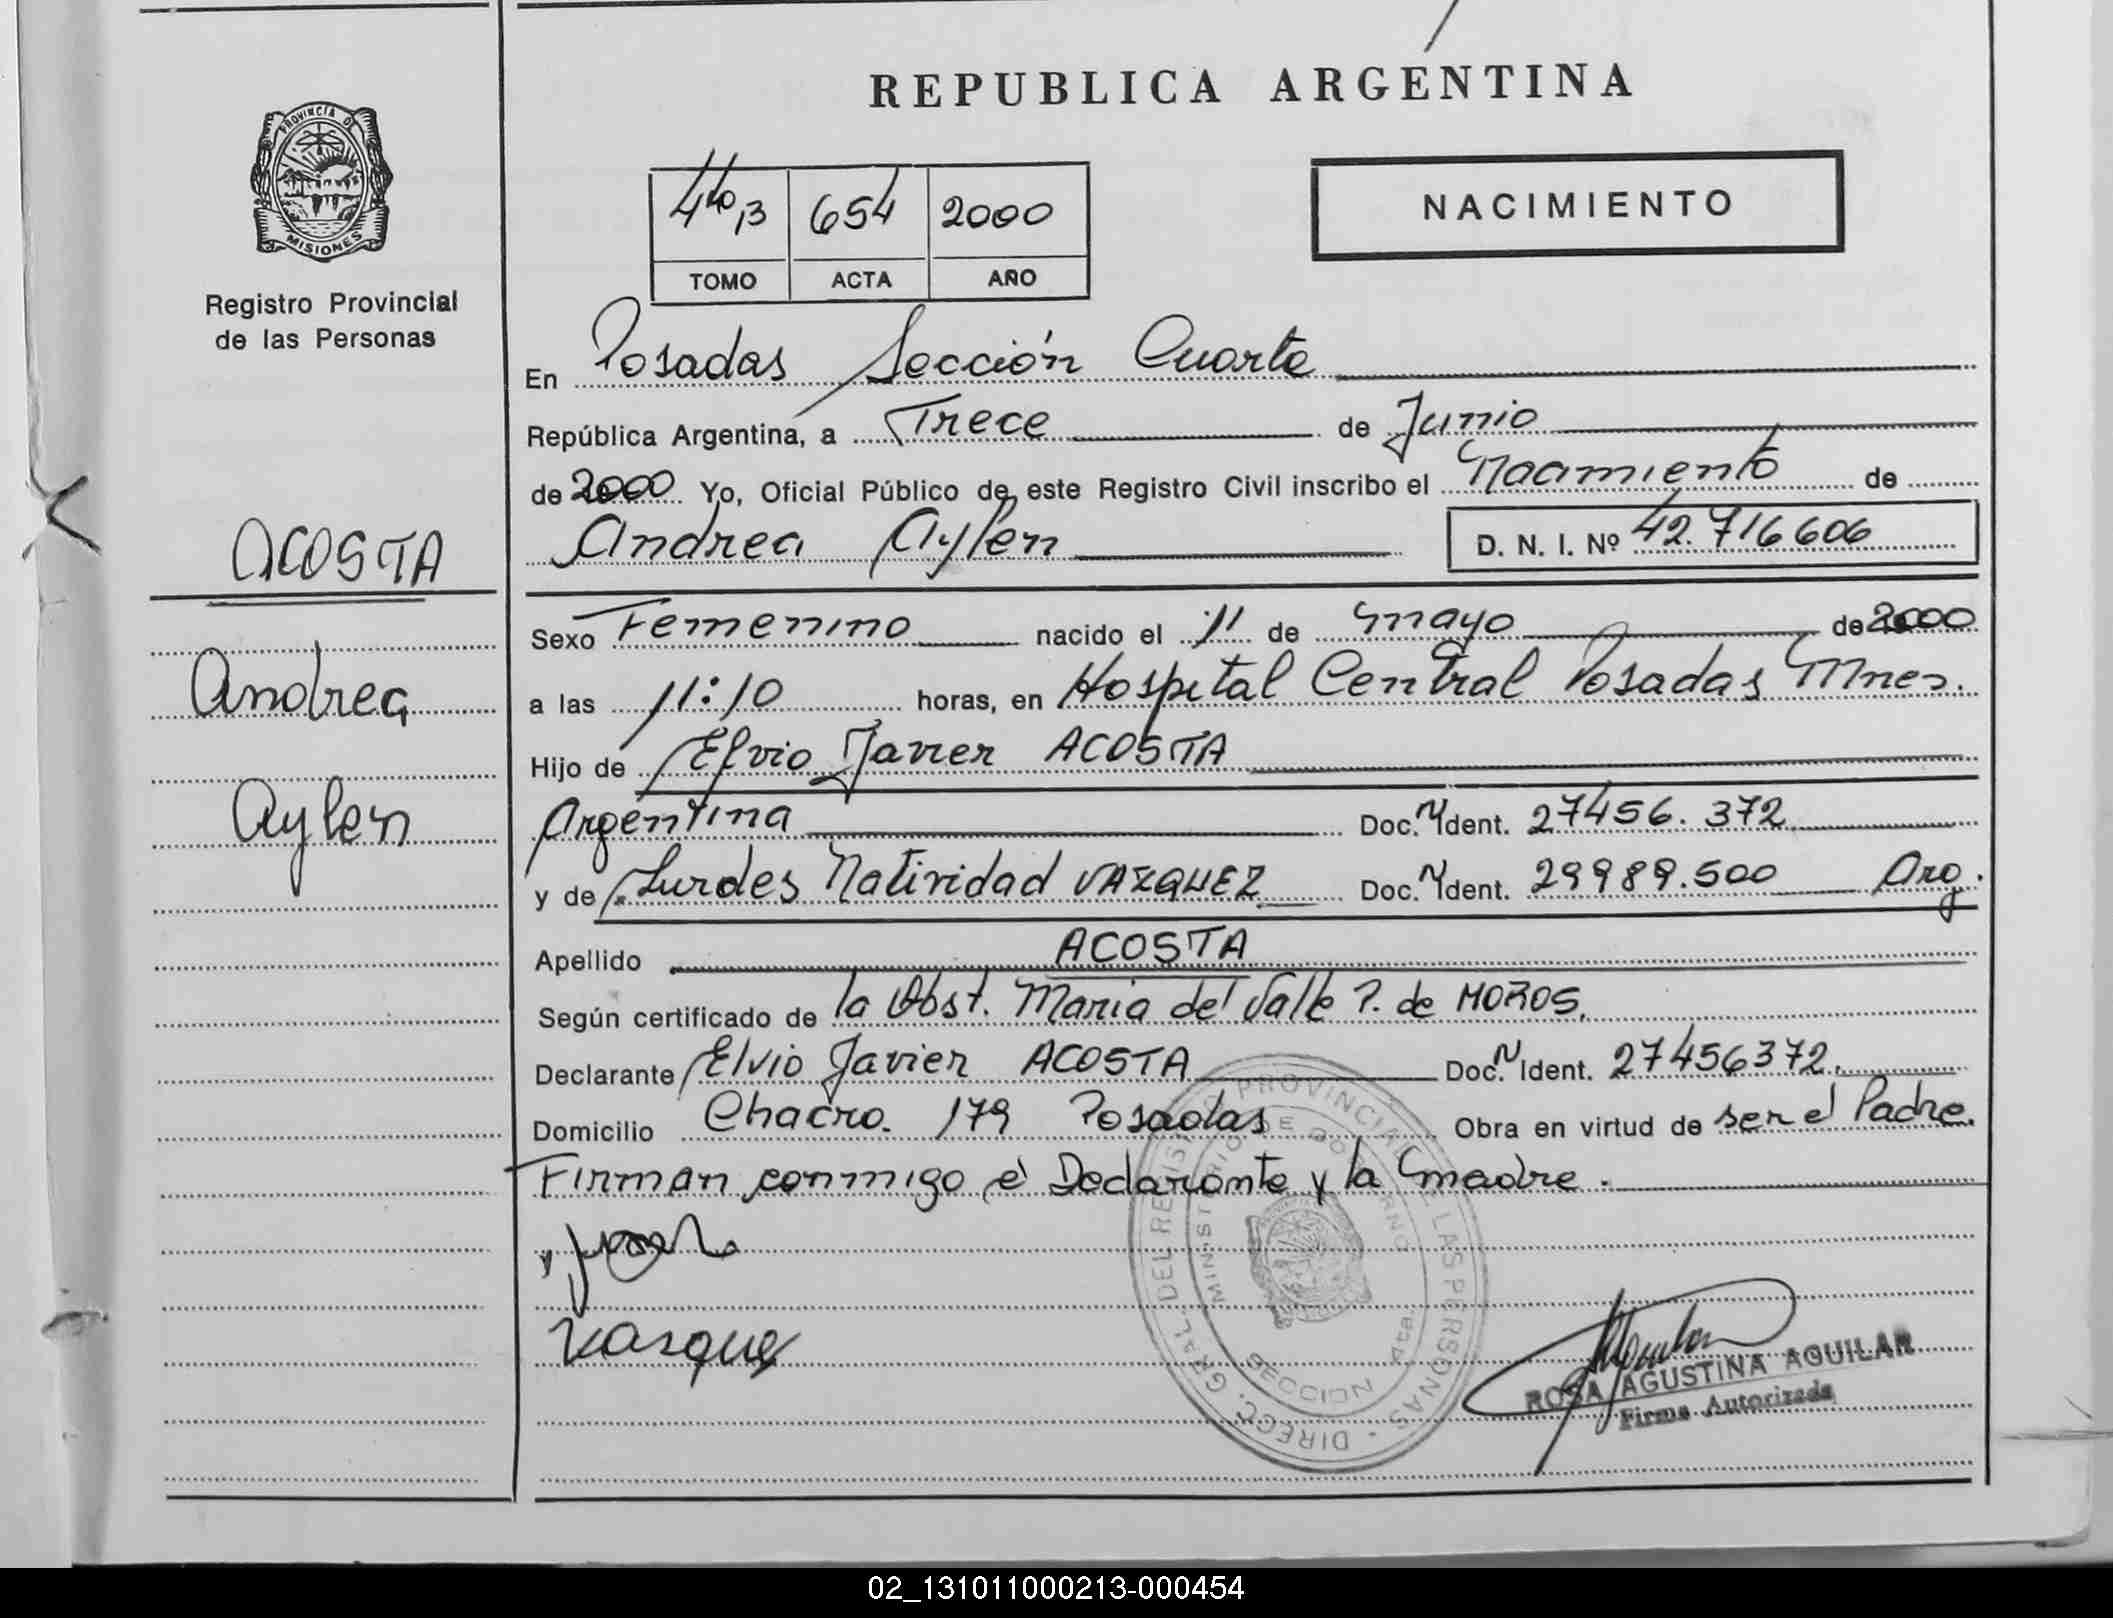 REPUBLICA ARGENTINA
PROVINCIA DE
MISIONES
Registro Provincial
de las Personas
4to,B 654 2000
TOMO ACTA AÑO
NACIMIENTO
En Posadas Sección Cuarta
República Argentina, a Trece de Junio
de 2000 Yo, Oficial Público de este Registro Civil inscribo el Nacimiento de
Andrea Aylen D. N. I. Nº 42.716606
ACOSTA
Andrea
Aylen
Sexo Femenino nacido el 11 de mayo de 2000
a las 11:10 horas, en Hospital Central Posadas Mnes.
Hijo de Elvio Javier ACOSTA
Argentina Doc. N Ident. 27456.372
y de Lurdes Natividad VAZQUEZ Doc. N Ident. 29989.500 Arg.
Apellido ACOSTA
Según certificado de la Obst. Maria del Valle P. de MOROS.
Declarante Elvio Javier ACOSTA Doc. N Ident. 27456372.
Domicilio Chacra. 179 Posadas Obra en virtud de ser el Padre.
Firman conmigo el Declarante y la madre.
DIRECC. GRAL. DEL REGISTRO PROVINCIAL DE LAS PERSONAS
MINISTERIO DE GOBIERNO
SECCION 4ta.
Vasquez
ROSA AGUSTINA AGUILAR
Firma Autorizada
02_131011000213-000454